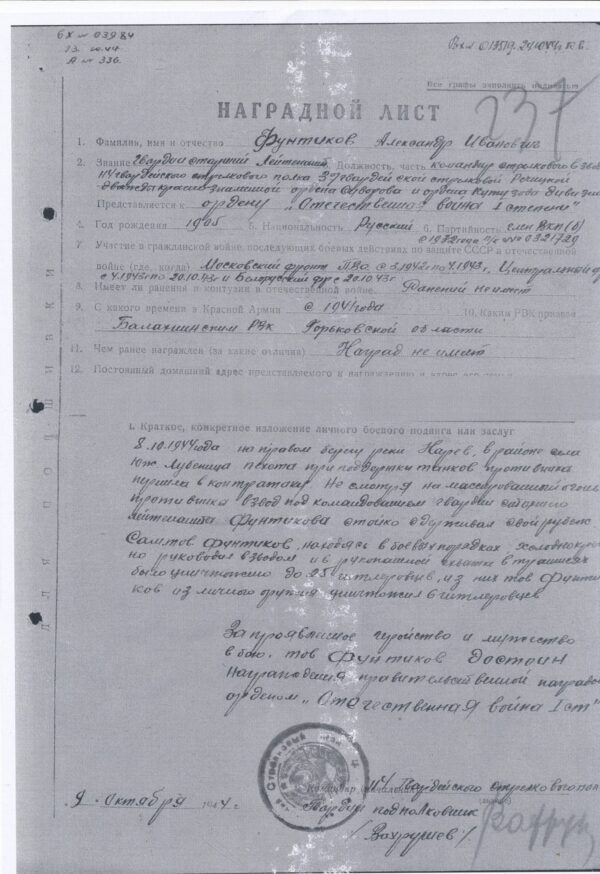 БХ № 03984
23.10.44
А № 336.
Вхл 013519. 29.10.44г.
Все графы заполнять полностью
237
НАГРАДНОЙ ЛИСТ
1. Фамилия, имя и отчество Фунтиков Александр Иванович
2. Звание гвардии старший лейтенант Должность, часть командир стрелкового взвода
114 гвардейского стрелкового полка 37 гвардейской стрелковой Речицкой
дважды краснознаменной ордена Суворова и ордена Кутузова дивизии
Представляется к ордену „Отечественная война I степени"
4. Год рождения 1905 5. Национальность Русский 6. Партийность член ВКП(б)
с 1932 года п/б № 0321729
7. Участие в гражданской войне, последующих боевых действиях по защите СССР и отечественной
войне (где, когда) Московский фронт ПВО с 5.1942 по 4.1943 г, Центральный
с 4.1943 по 20.10.43г и Белорусский фр с 20.10.43г
8. Имеет ли ранения и контузии в отечественной войне Ранений не имеет
9. С какого времени в Красной Армии с 1941 года 10. Каким РВК призван
Балахнинским РВК Горьковской области
11. Чем ранее награжден (за какие отличия) Наград не имеет
12. Постоянный домашний адрес представляемого к награждению и адрес его семьи
для подшивки
1. Краткое, конкретное изложение личного боевого подвига или заслуг
8.10.1944 года на правом берегу реки Нарев, в районе села
Юж. Лубеница пехота при поддержки танков противника
перешла в контратаку. Не смотря на массированный огонь
противника взвод под командованием гвардии старшего
лейтенанта Фунтикова стойко удерживал свой рубеж
Сам тов Фунтиков, находясь в боевых порядках хладнокров
но руководил взводом и в рукопашной схватке в траншеях
было уничтожено до 25 гитлеровцев, из них тов Фунти
ков из личного оружия уничтожил 6 гитлеровцев
За проявленное геройство и мужество
в бою, тов Фунтиков Достоин
награждения правительственной наградой
орденом „Отечественная война I ст"
Командир (начальник) 114 Гвардейского стрелкового пол
Гвардии подполковник
9. Октября 1944 г.
/Вахрушев/